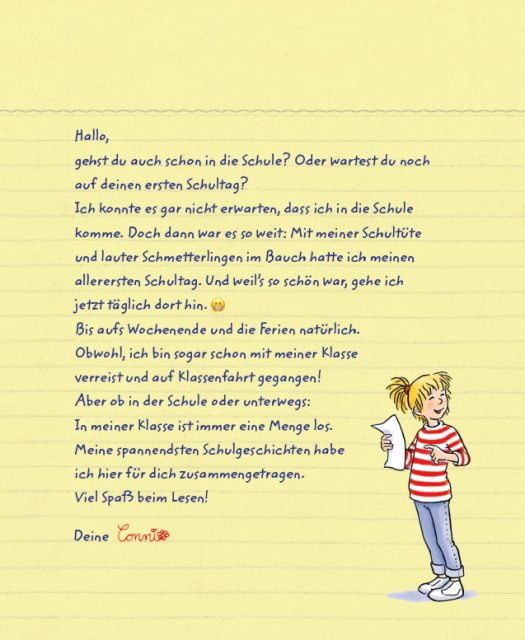 Hallo,
gehst du auch schon in die Schule? Oder wartest du noch
auf deinen ersten Schultag?
Ich konnte es gar nicht erwarten, dass ich in die Schule
komme. Doch dann war es so weit: Mit meiner Schultüte
und lauter Schmetterlingen im Bauch hatte ich meinen
allerersten Schultag. Und weil's so schön war, gehe ich
jetzt täglich dort hin. 😬
Bis aufs Wochenende und die Ferien natürlich.
Obwohl, ich bin sogar schon mit meiner Klasse
verreist und auf Klassenfahrt gegangen!
Aber ob in der Schule oder unterwegs:
In meiner Klasse ist immer eine Menge los.
Meine spannendsten Schulgeschichten habe
ich hier für dich zusammengetragen.
Viel Spaß beim Lesen!
Deine Conni